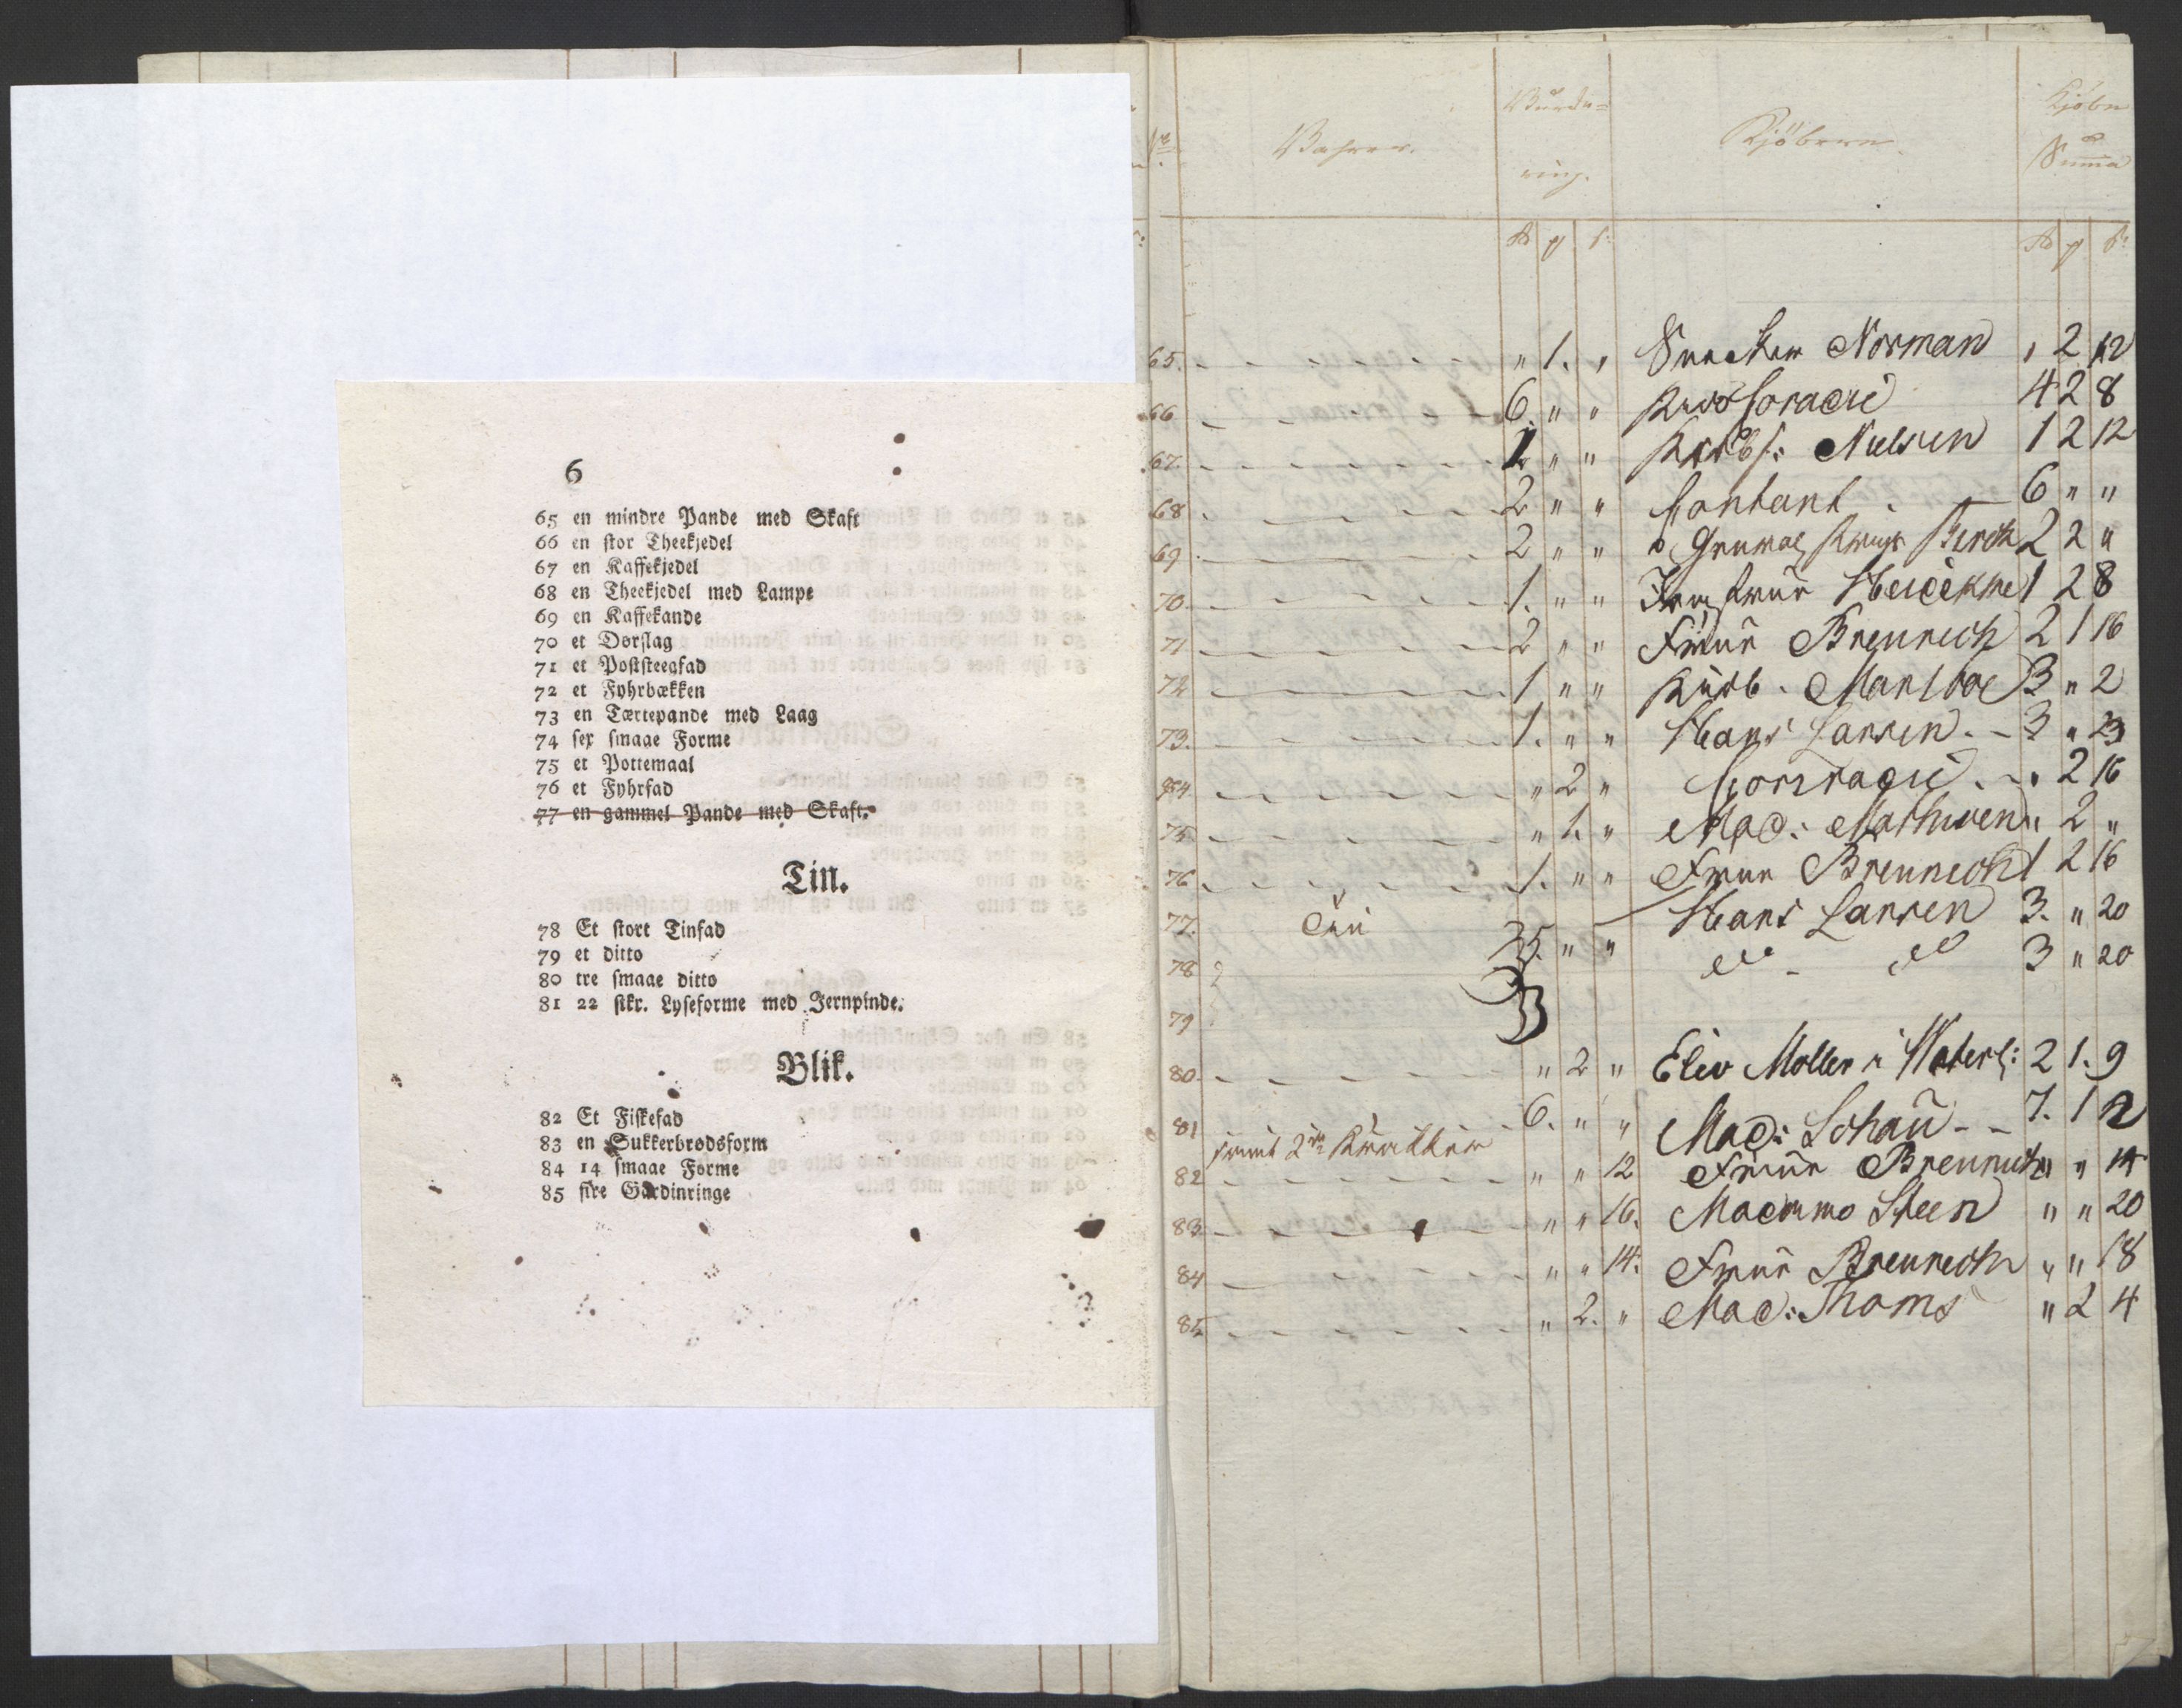 6
65 en mindre Pande med Skaft
66 en stor Theekjedel
67 en Kaffekjedel
68 en Theekjedel med Lampe
69 en Kaffekande
70 et Dørslag
71 et Poststeegfad
72 et Fyhrbækken
73 en Tærtepande med Laag
74 sex smaae Forme
75 et Pottemaal
76 et Fyhrfad
77 en gammel Pande med Skaft.
Tin.
78 Et stort Tinfad
79 et ditto
80 tre smaae ditto
81 22 stkr. Lyseforme med Jernpinde.
Blik.
82 Et Fiskefad
83 en Sukkerbrødsform
84 14 smaae Forme
85 fire Gardinringe
No. Vahrer. Vurde= ring. Kjöbere. Kjöbe Summa
65. " 1. " Norman " 2 12
66 6. " " 4 2 8
67. 1 " " Nielsen 1 2 12
68 2 " " Contant 6 " "
69 2 " " 2 2 "
70. 1. " " 1 2 8
71 2 " " Frue Breunech 2 1 16
72 1 " " 3 " 2
73. 1. " " Hans Larsen. 3 " 23
74 " 2 " " 2 16
75 " 1. " Mad: " 2 "
76 1. " " Frue Breunech 1 2 16
77. Tin 3. " " Hans Larsen 3. " 20
78 3 " 20
79
80. " 2 " Eliv Moller i 2 1. 9
81 6. " " Mad: Schau 7. 1 2
82 " " 12 Frue Breunech " "
83 " " 16. Steen " " 20
84 " " 14. Frue Breunech " " 18
85 " 2. " Mad: Thoms " 2 4